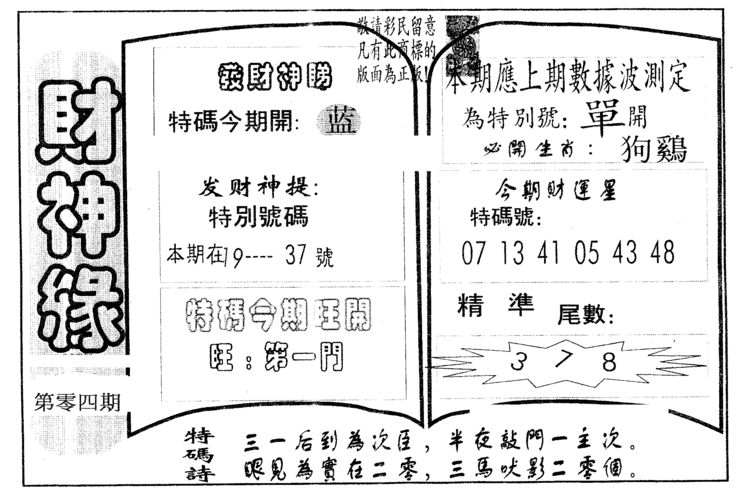 財神緣
第零四期
敬請彩民留意
凡有此商標的
版面為正版!
發財神賜
特碼今期開: 蓝
发财神提:
特別號碼
本期在19---- 37號
特碼今期旺開
旺:第一門
本期應上期數據波測定
為特別號:單開
必開生肖: 狗鷄
今期財運星
特碼號:
07 13 41 05 43 48
精 準 尾數:
3 7 8
特碼詩
三一后到為次臣,半夜敲門一主次。
眼見為實在二零,三馬吠影二零個。